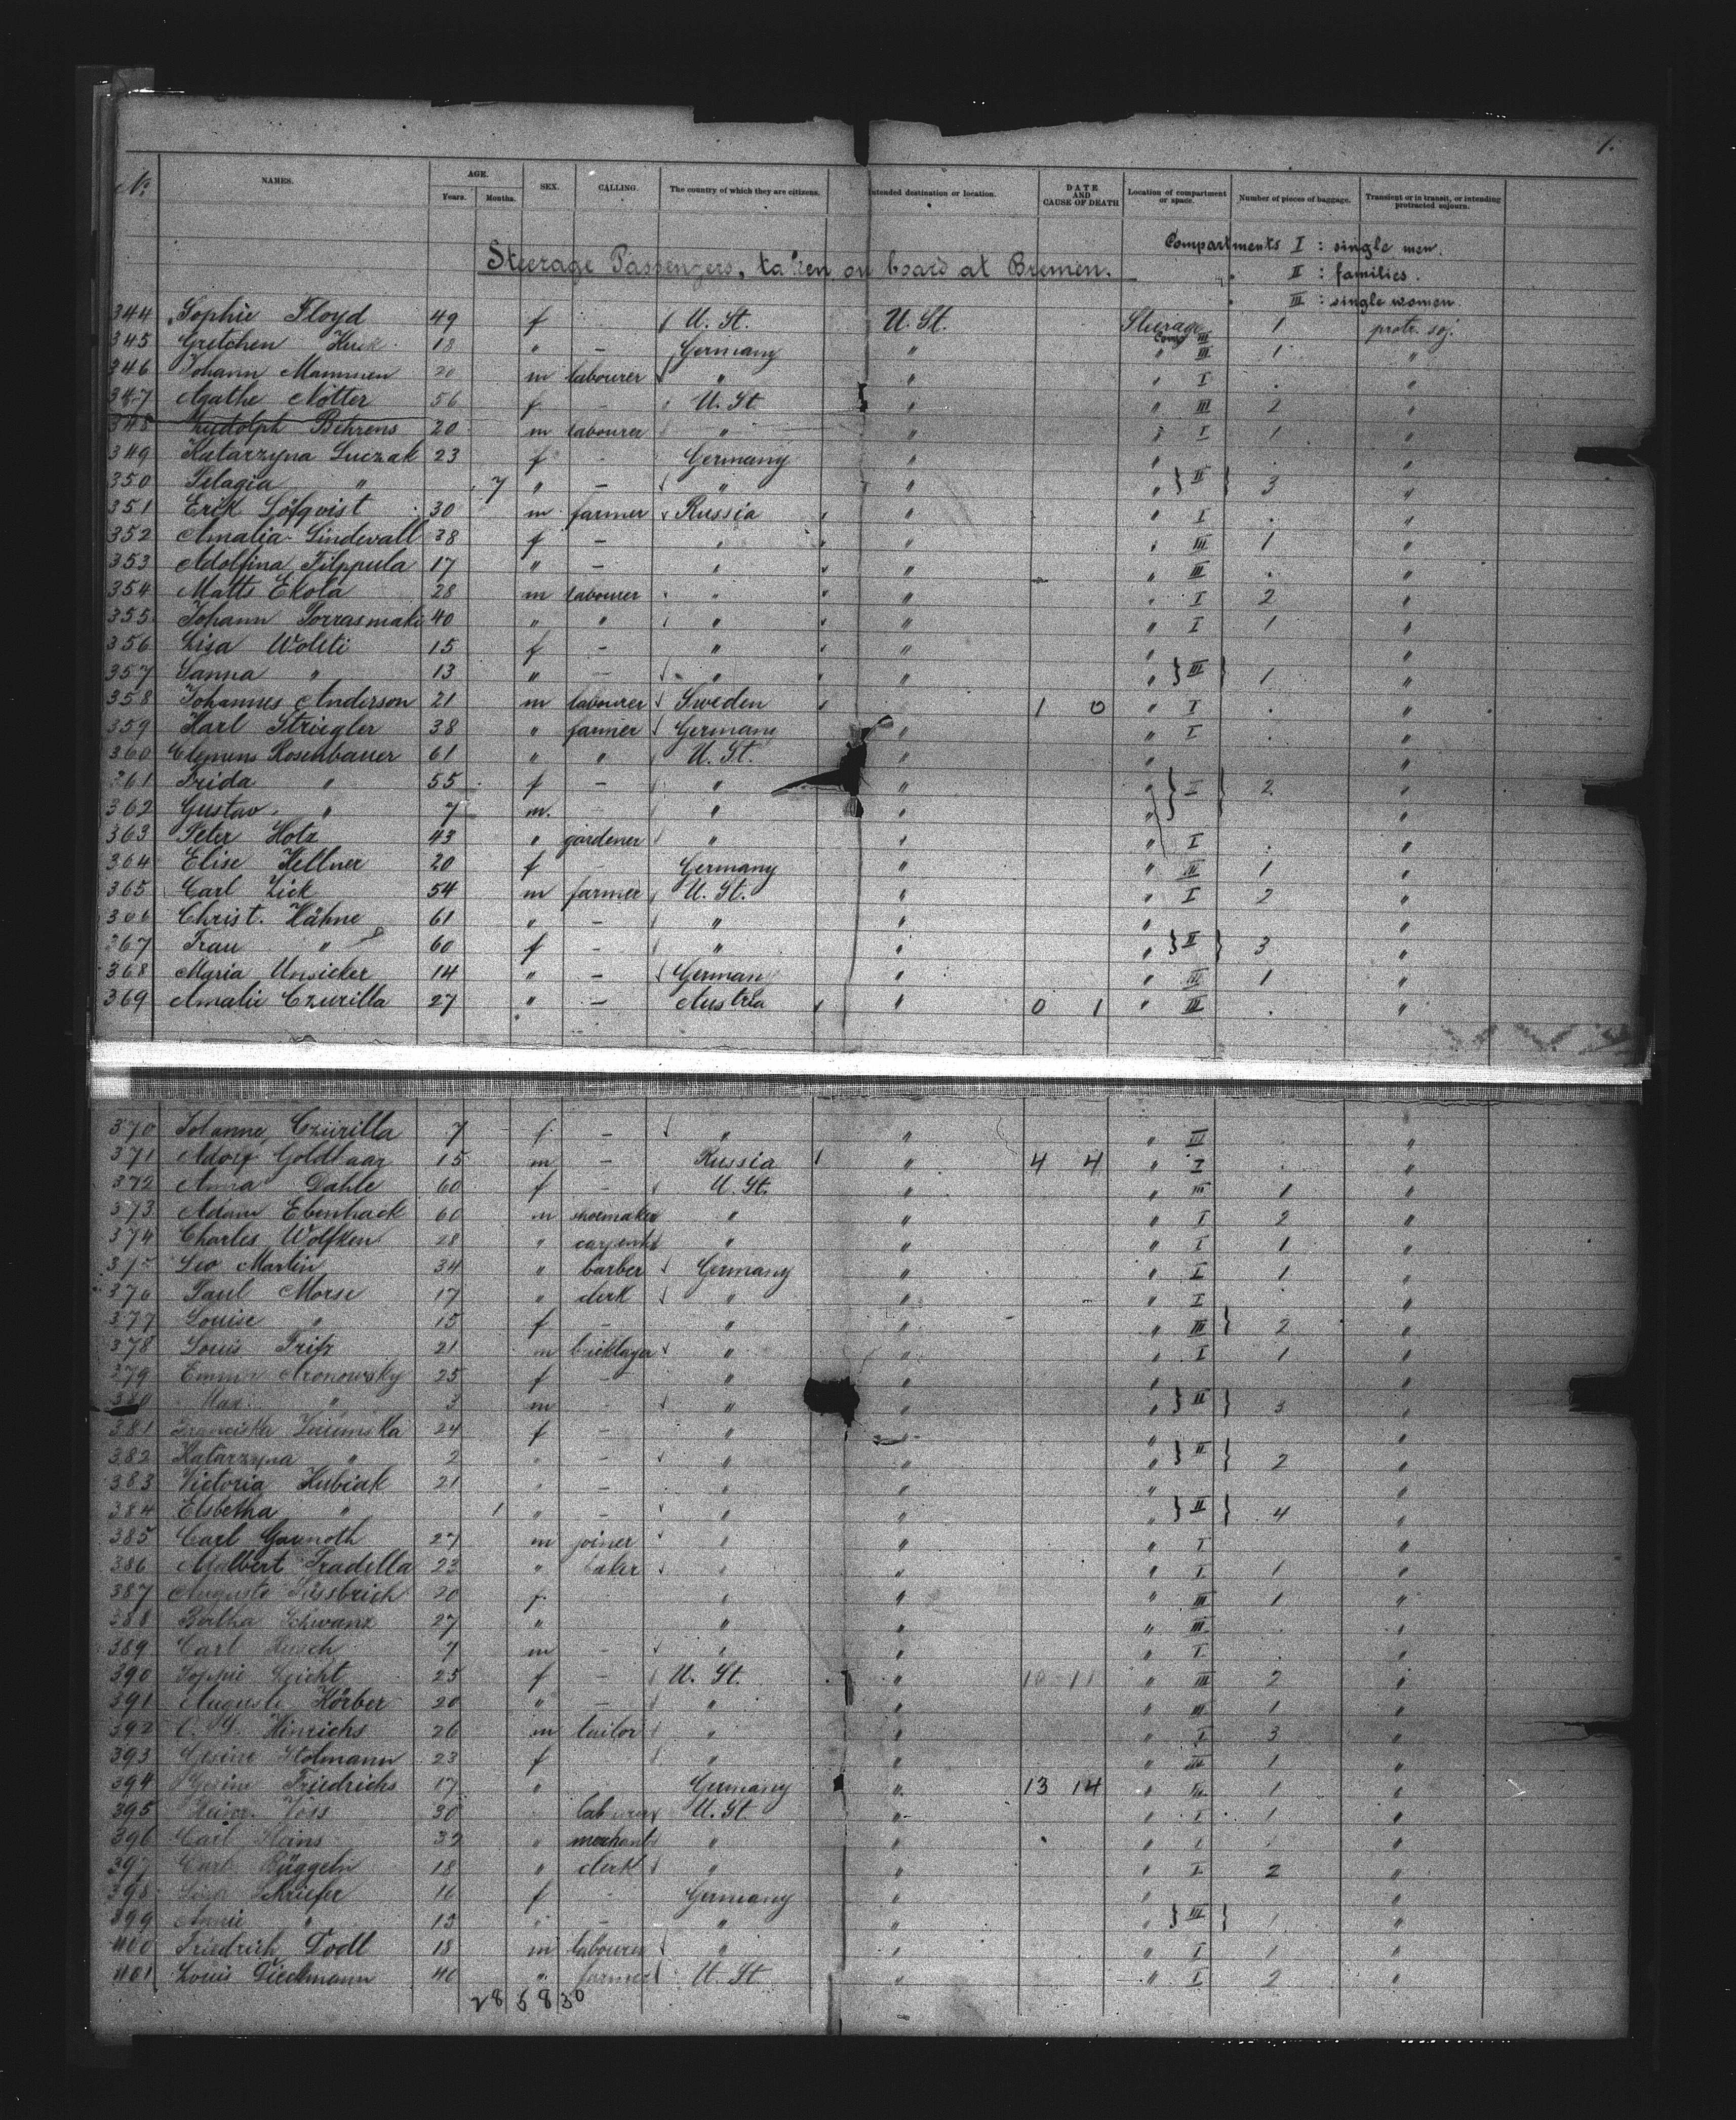 1.
No. NAMES. AGE. Years. Months. SEX. CALLING. The country of which they are citizens. Intended destination or location. DATE AND CAUSE OF DEATH Location of compartment or space. Number of pieces of baggage. Transient or in transit, or intending protracted sojourn.
Compartments I : single men.
Steerage Passengers, taken on board at Bremen. " II : families.
" III : single women.
344 Sophie Floyd 49 f U. St. U. St. Steerage Comp III 1 protr. soj.
345 Gretchen Huck 18 " – Germany " " III 1 "
346 Johann Mammen 20 m labourer " " " I . "
347 Agathe Nötter 56 f – U. St. " " III 2 "
348 Rudolph Behrens 20 m labourer " " " I 1 "
349 Katarzyna Luczak 23 f Germany " " "
350 Pelagia " 7 " – " " " } II } 3 "
351 Erik Löfqvist 30 m farmer Russia " " I . "
352 Amalia Lindevall 38 f – " " " III 1 "
353 Adolfina Filppula 17 " – " " " III . "
354 Matts Ekola 28 m labourer " " " I 2 "
355 Johann Porrasmaki 40 " " " " " I 1 "
356 Lisa Wolsti 15 f – " " " "
357 Sanna " 13 " – " " " } III } 1 "
358 Johannes Anderson 21 m labourer Sweden 1 0 " I . "
359 Karl Striegler 38 " farmer Germany " " I . "
360 Clemens Rosenbauer 61 " " U. St. " "
361 Frida " 55 f – " " " } I } 2 "
362 Gustav " 7 m. – " " " "
363 Peter Hotz 43 " gardener " " " I . "
364 Elise Kellner 20 f – Germany " " II 1 "
365 Carl Zick 54 m farmer U. St. " " I 2 "
366 Christ. Hähne 61 " – " " " "
367 Frau " 60 f – " " " } II } 3 "
368 Maria Unsicker 14 " – German " " III 1 "
369 Amalie Czurilla 27 " – Austria " 0 1 " III . "
370 Johanne Czurilla 7 f – " " " III . "
371 Adolf 15 m – Russia " 4 4 " I . "
372 Anna Dahle 60 f – U. St. " " III 1 "
373 Adam Ebenhack 60 m shoemaker " " " I 2 "
374 Charles Wolfken 28 " " " " I 1 "
375 Leo Martin 34 " barber Germany " " I 1 "
376 Paul Morse 17 " clerk " " " I . "
377 Louise " 15 f – " " " III } 2 "
378 Louis Fritz 21 m bricklayer " " " I 1 "
379 Emma Aronowsky 25 f – " " " "
380 Max " 3 m – " " " } II } 3 "
381 Franciska 24 f – " " "
382 Katarzyna " 2 " – " " " } II } 2 "
383 Victoria Kubiak 21 " – " " " "
384 Elsbetha " 1 " – " " " } II } 4 "
385 Carl 27 m joiner " " " I "
386 Adalbert Pradella 23 " baker " " " I 1 "
387 Auguste 20 f " " " III 1 "
388 Bertha Schwanz 27 " " " " III . "
389 Carl 7 m – " " " I . "
390 Sophie Leicht 25 f – U. St. " 10 11 " III 2 "
391 Auguste Körber 20 " – " " " III 1 "
392 Hinrichs 26 m tailor " " " I 3 "
393 Gesine Stolmann 23 f " " " III 1 "
394 Gesine Friedrichs 17 " Germany " 13 14 " III 1 "
395 Heinr. Voss 30 labourer U. St. " " I 1 "
396 Carl 32 " merchant " " " I . "
397 Carl Büggeln 18 " clerk " " " I 2 "
398 Schriefer 16 f – Germany " " "
399 Annie " 13 " – " " " } III } 1 "
400 Friedrich Dodt 18 m labourer " " " I 1 "
401 Louis Dieckmann 40 " farmer U. St. " " I 2 "
28 58 30